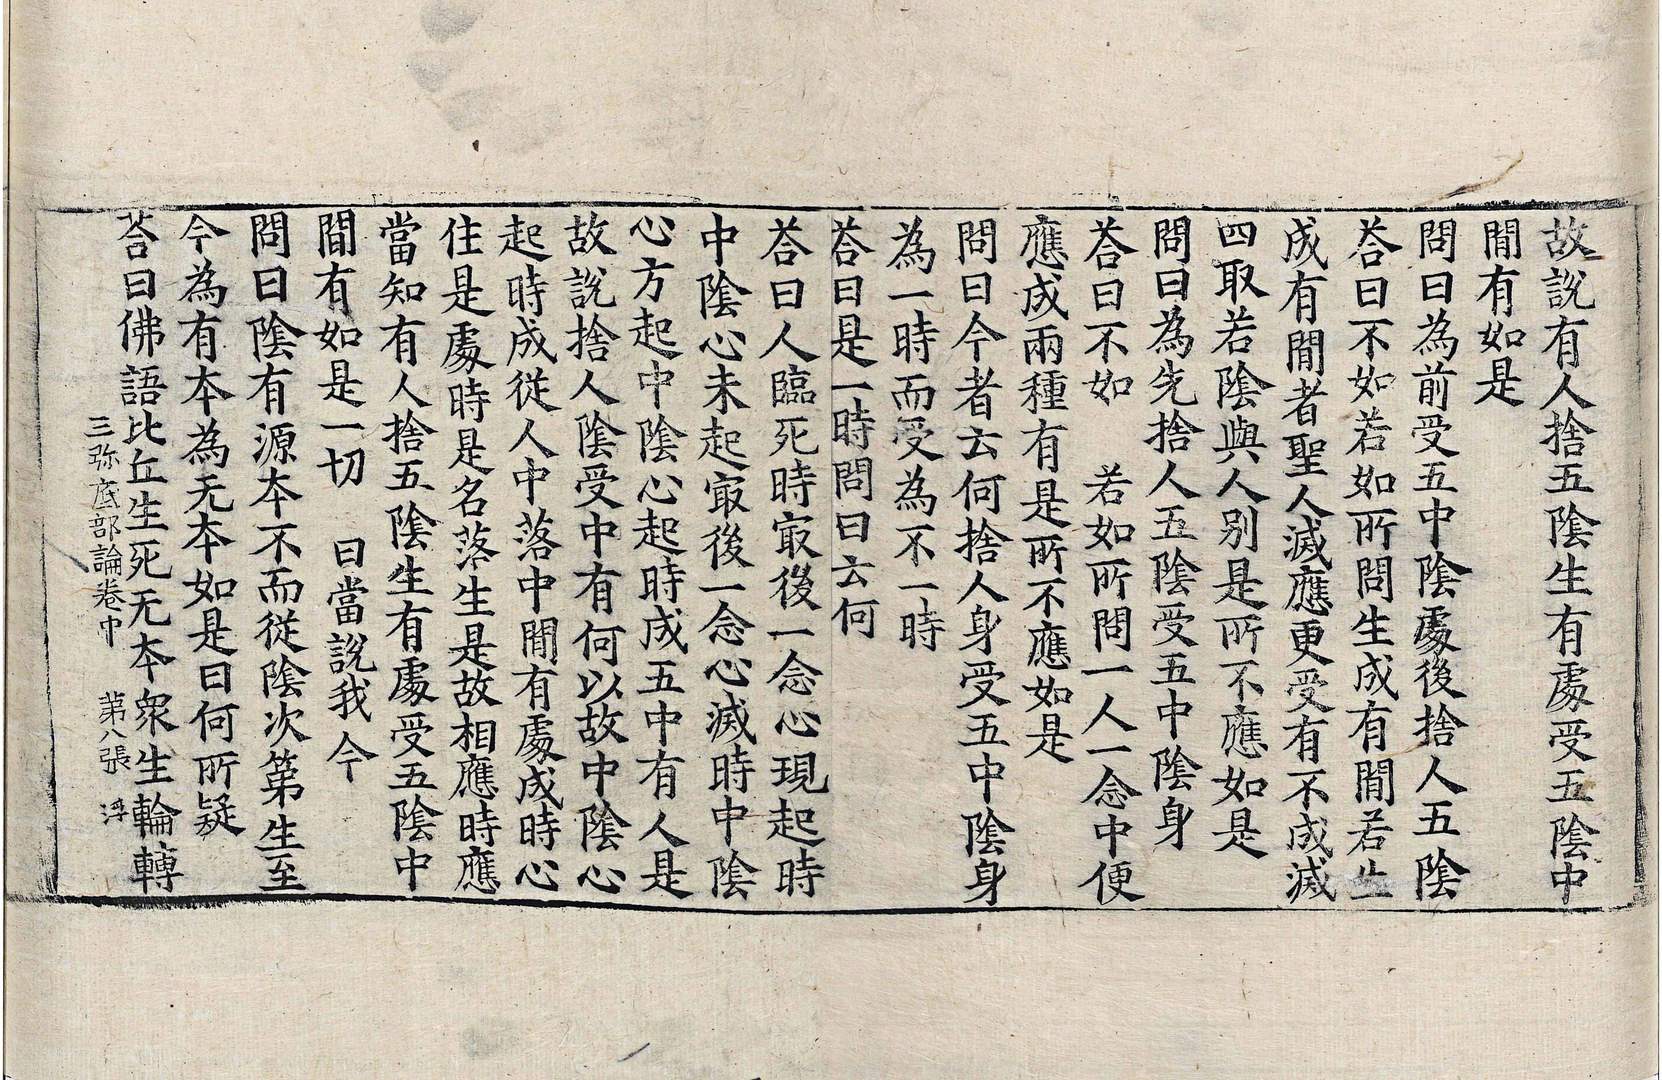 故說有人捨五陰生有處受五陰中
間有如是
問曰為前受五中陰處後捨人五陰
荅曰不如若如所問生成有間若生
成有間者聖人滅應更受有不成滅
四取若陰與人別是所不應如是
問曰為先捨人五陰受五中陰身
荅曰不如 若如所問一人一念中便
應成兩種有是所不應如是
問曰今者云何捨人身受五中陰身
為一時而受為不一時
荅曰是一時問曰云何
荅曰人臨死時㝡後一念心現起時
中陰心未起㝡後一念心滅時中陰
心方起中陰心起時成五中有人是
故說捨人陰受中有何以故中陰心
起時成從人中落中間有處成時心
住是處時是名落生是故相應時應
當知有人捨五陰生有處受五陰中
間有如是一切 曰當說我今
問曰陰有源本不而從陰次第生至
今為有本為无本如是曰何所疑
荅曰佛語比丘生死无本衆生輪轉
三弥底部論卷中 第八張